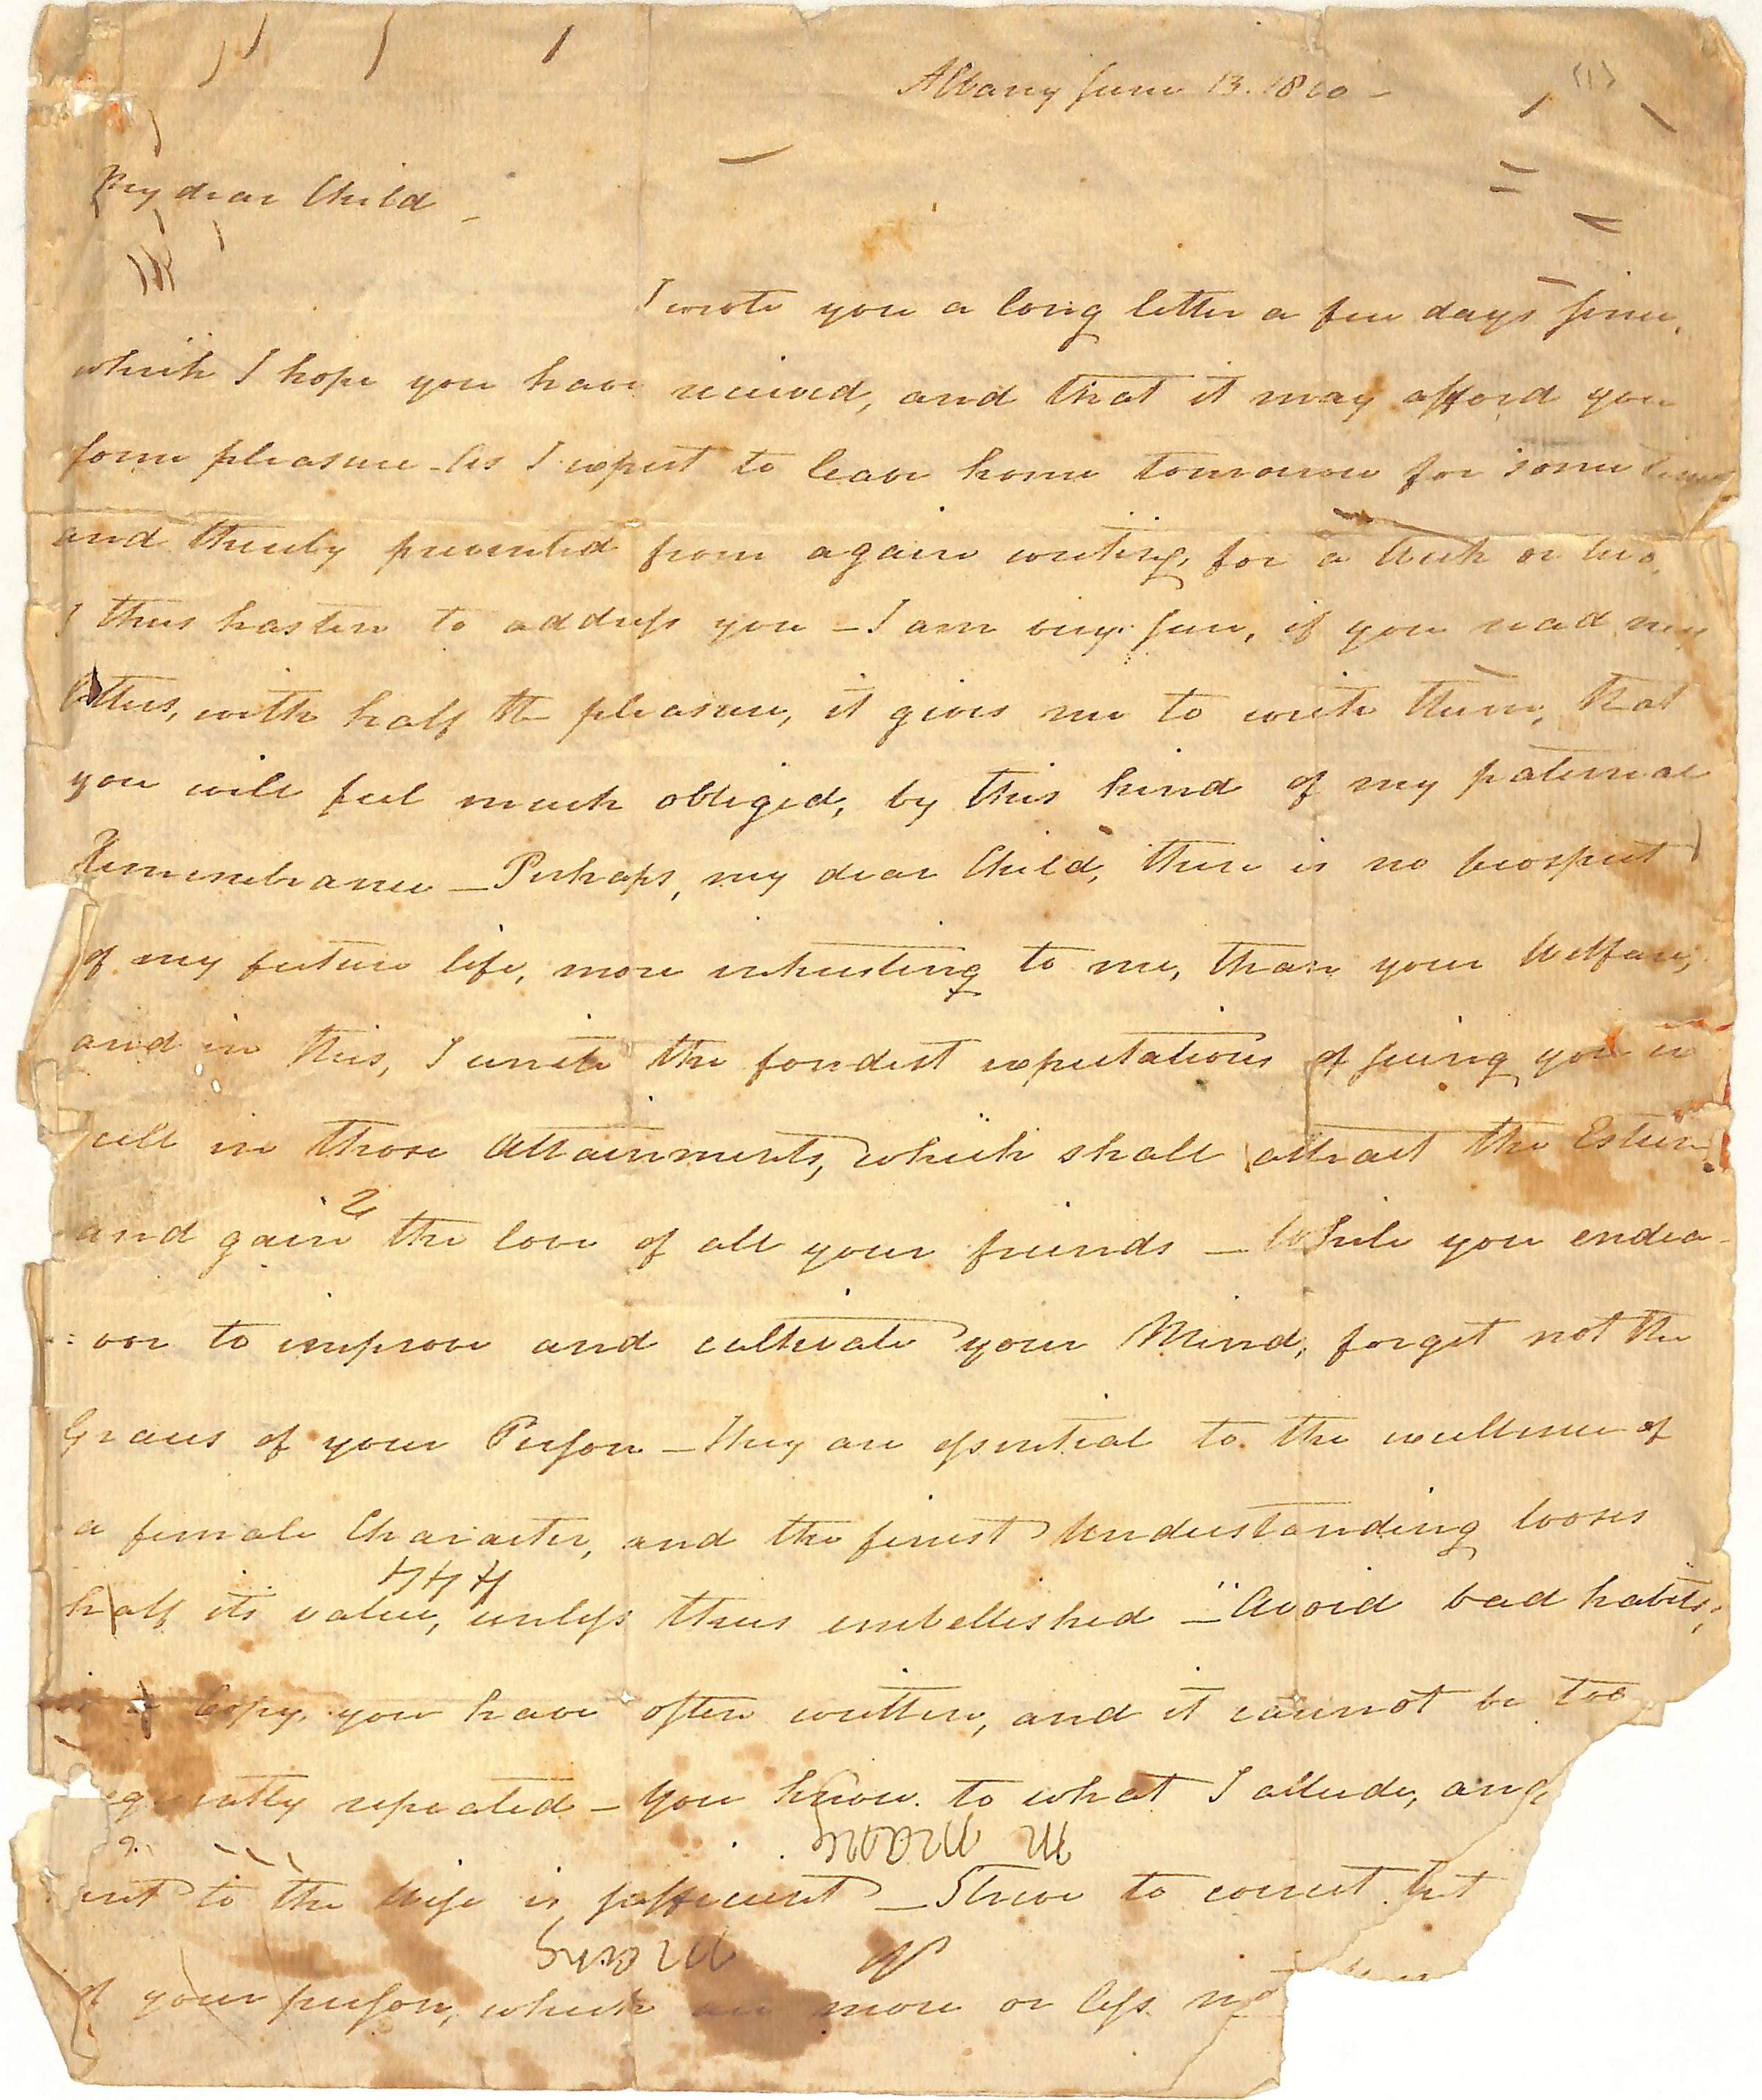 (1)
Albany June 13. 1810 -
My dear Child -
I wrote you a long letter a few days since,
which I hope you have received, and that it may afford you
some pleasure - As I expect to leave home tomorrow for some time
and thereby prevented from again writing, for a Week or two,
I thus hasten to address you - I am very sure, if you read my
letters, with half the pleasure, it gives me to write them, that
you will feel much obliged, by this kind of my paternal
Remembrance - Perhaps, my dear Child, there is no prospect
of my future life, more interesting to me, than your Welfare,
and in this, I unite the fondest expectations of seeing you ex
cell in those Attainments, which shall attract the Esteem
and gain the love of all your friends - While you endea-
:vor to improve and cultivate your Mind, forget not the
Graces of your Person - They are essential to the excellence of
a female Character, and the finest Understanding looses
half its value, unless thus embellished - "Avoid bad habits,"
is a Copy, you have often written, and it cannot be too
equently repeated - You know to what I allude, and
M Mary
to the Wise is sufficient - Strive to correct
Mary M
of your person, which are more or less